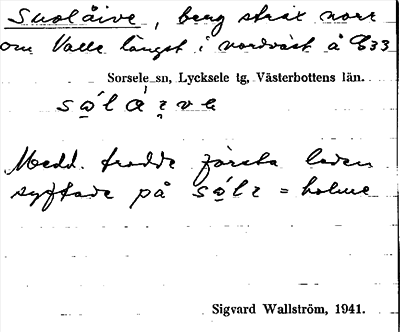 Suolåive, berg strax norr
om Valle längst i nordväst å
Sorsele sn, Lycksele tg, Västerbottens län.
Medd. trodde första leden
syftade på = holme
Sigvard Wallström, 1941.